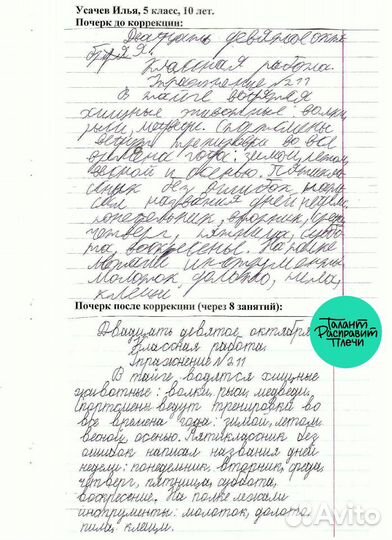 Усачев Илья, 5 класс, 10 лет.
Почерк до коррекции:
Двадцать девятое октя
бря.
Классная работа.
Упражнение №211
В тайге водятся
хищные животные: волки,
рыси, медведи. Спортсмены
ведут тренировки во все
времена года: зимой, летом,
весной и осенью. Пятикла
ссник без ошибок напи
сал названия дней недели:
понедельник, вторник, среда
четверг, пятница, суббо
та, воскресенье. На полке
лежали инструменты:
молоток, долото, пила,
клещи.
Почерк после коррекции (через 8 занятий):
Двадцать девятое октября
Классная работа.
Упражнение №211
В тайге водятся хищные
животные: волки, рыси, медведи.
Спортсмены ведут тренировки во
все времена года: зимой, летом
весной осенью. Пятиклассник без
ошибок написал названия дней
недели: понедельник, вторник, среда,
четверг, пятница, суббота,
воскресение. На полке лежали
инструменты: молоток, долото,
пила, клещи.
Талант
Расправит
Плечи
Avito